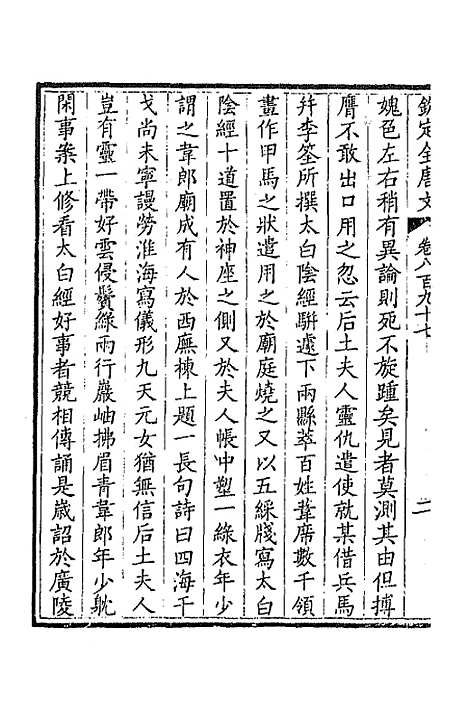 欽定全唐文 卷八百九十七 二
媿色左右稍有異論則死不旋踵矣見者莫測其由但搏
膺不敢出口用之忽云后土夫人靈仇遣使就某借兵馬
并李筌所撰太白陰經騈遽下兩縣萃百姓葦席數千領
畫作甲馬之狀遣用之於廟庭燒之又以五綵牋寫太白
陰經十道置於神座之側又於夫人帳中塑一綠衣年少
謂之韋郎廟成有人於西廡棟上題一長句詩曰四海干
戈尚未寧謾勞淮海寫儀形九天元女猶無信后土夫人
豈有靈一帶好雲侵鬢綠兩行巖岫拂眉青韋郎年少躭
閑事案上修看太白經好事者競相傳誦是歲詔於廣陵